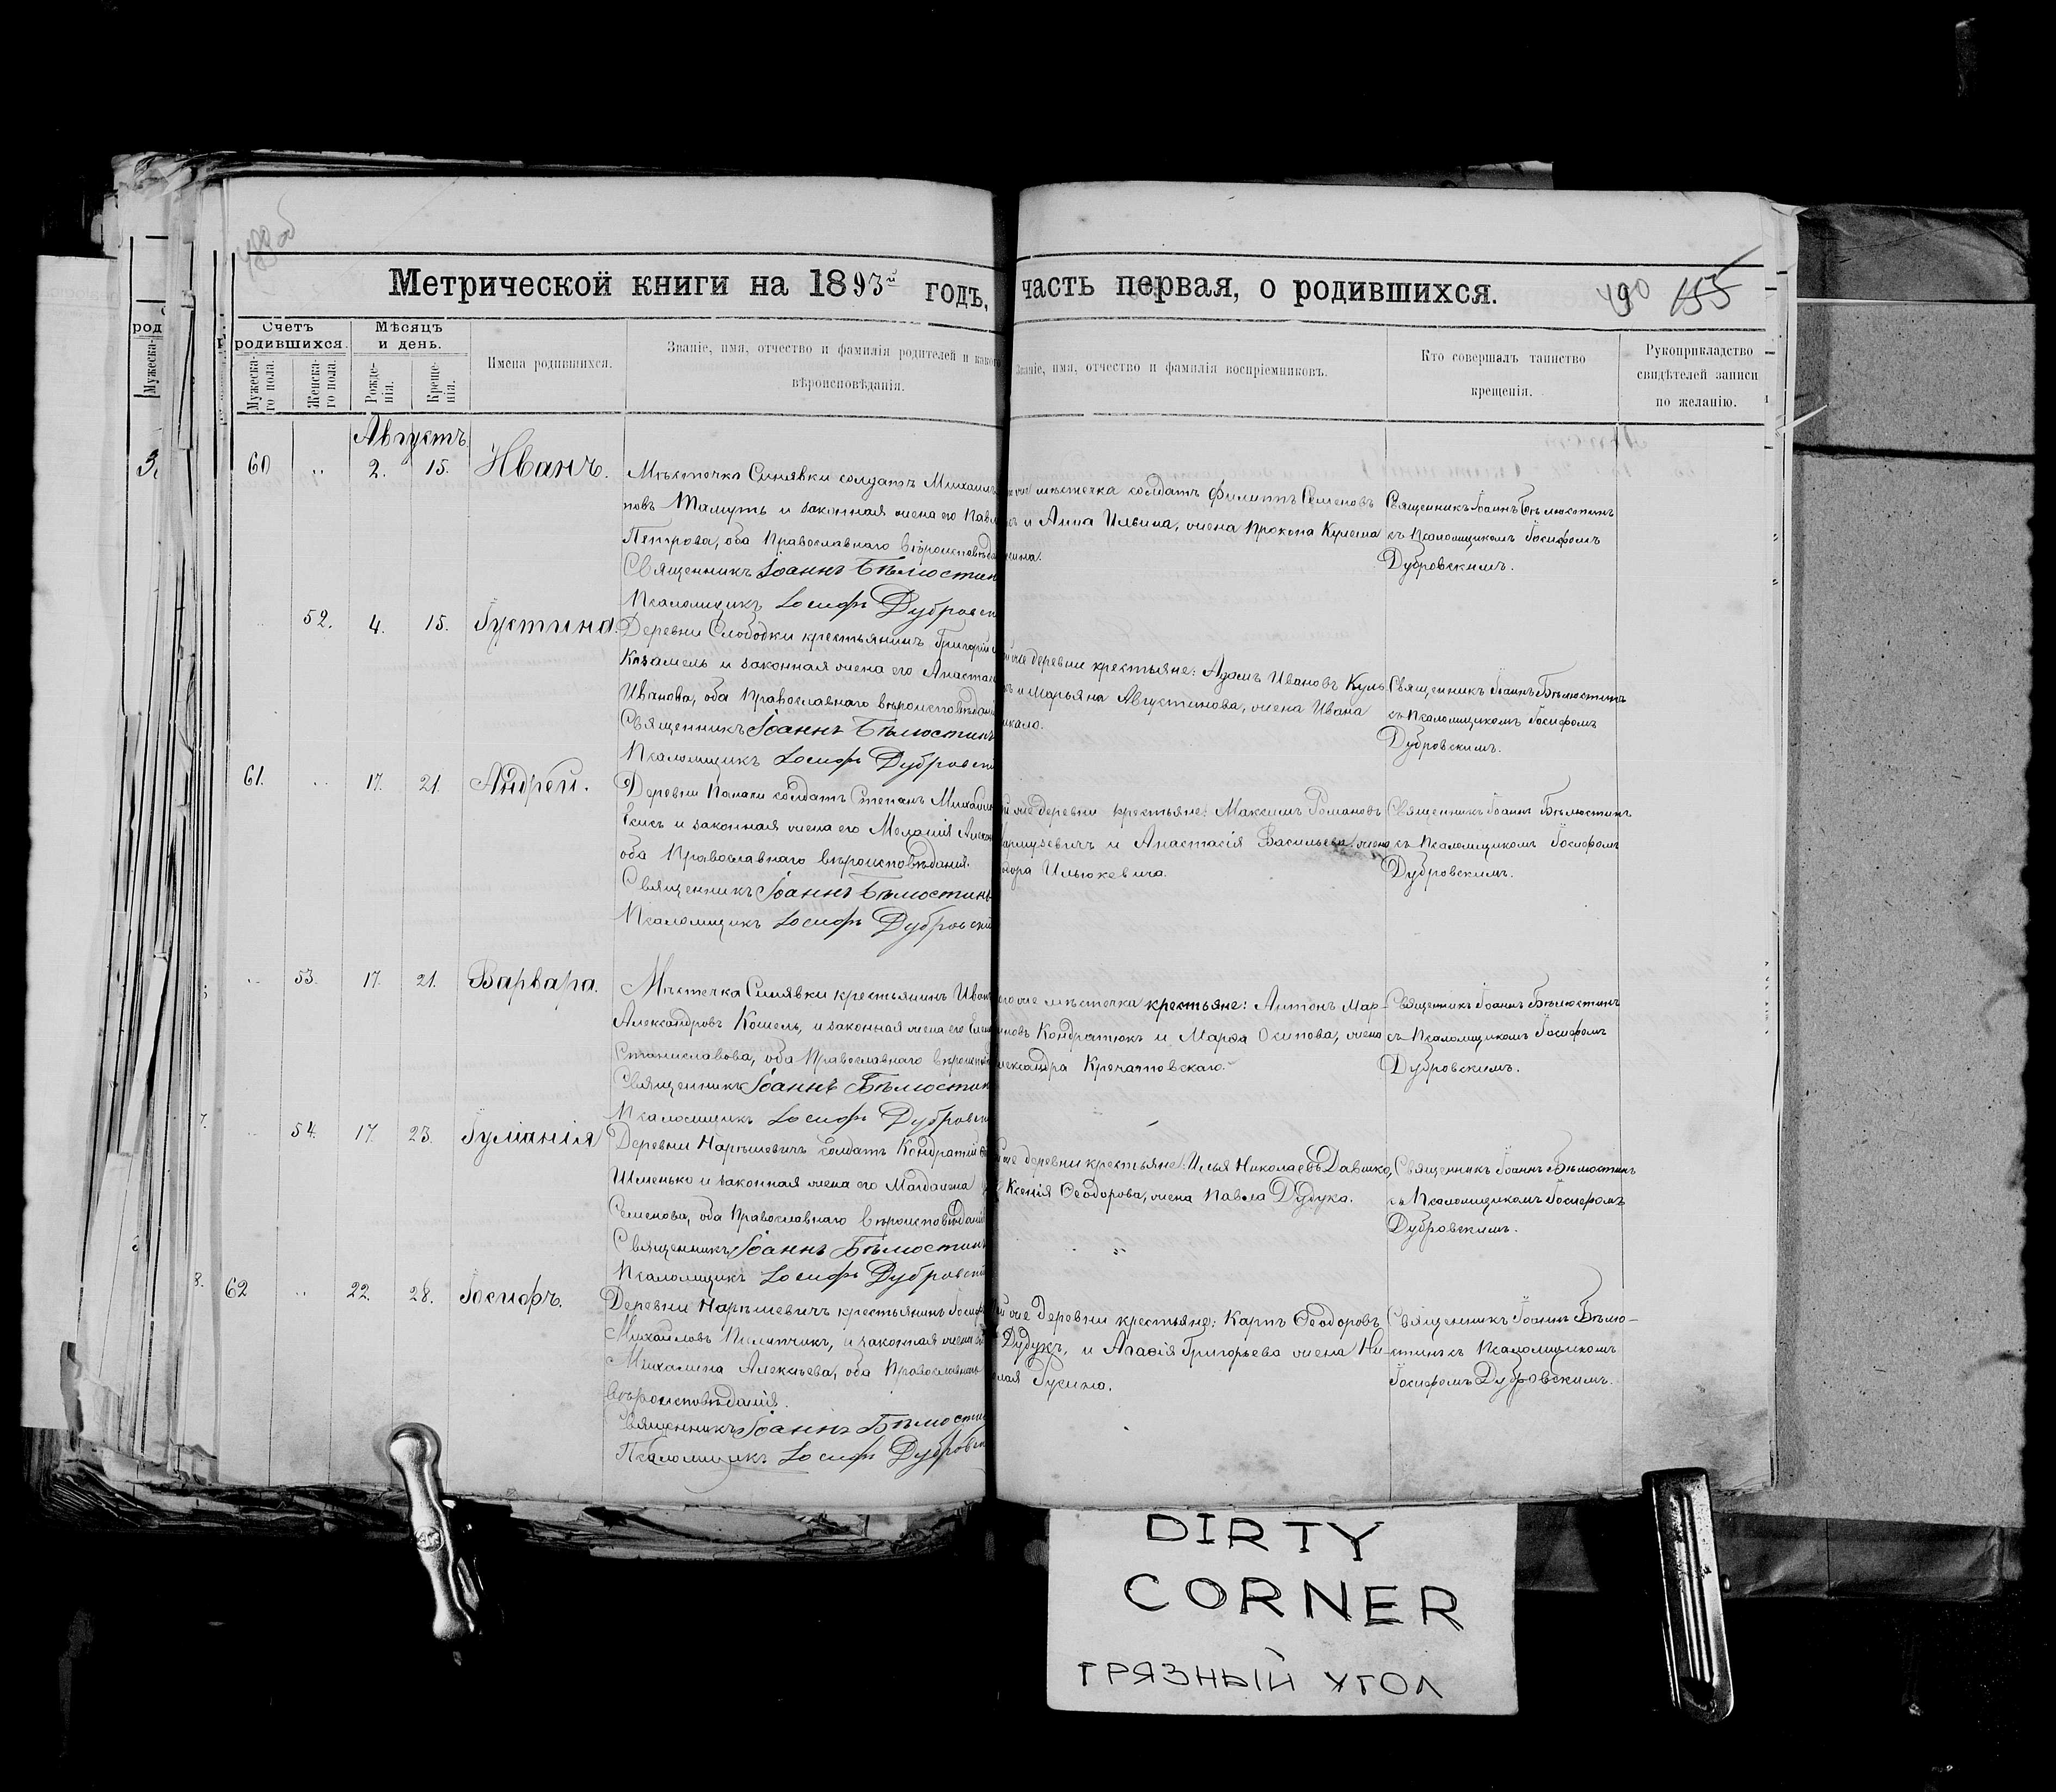 Метрической книги на 1893й годъ,
часть первая, о родившихся.
490 155
Счетъ родившихся.
Мѣсяцъ и день.
Мужеска-го пола.
Женска-го пола.
Рожде-нія.
Креще-нія.
Имена родившихся.
Званіе, имя, отчество и фамилія родителей и какого
вѣроисповѣданія.
Званіе, имя, отчество и фамилія воспріемниковъ.
Кто совершалъ таинство
крещенія.
Рукоприкладство
свидѣтелей записи
по желанію.
Августъ
60 " 2. 15. Иванъ.
Мѣстечка Синявки солдатъ Михаилъ
новъ Мамуть и законная жена его Павл
Петрова, оба Православнаго вѣроисповѣда
Священникъ Іоаннъ Бѣлюстин
Псаломщикъ Іосифъ Дубровск
же мѣстечка солдатъ Филиппъ Семеновъ
и Анна Ильина, жена Прокопа Кулеша
Священникъ Іоаннъ Бѣлюстинъ
съ Псаломщикомъ Іосифомъ
Дубровскимъ.
52. 4. 15. Іустина.
Деревни Слободки крестьянинъ Григорій
и законная жена его Анастас
Иванова, оба Православнаго вѣроисповѣдан
Священникъ Іоаннъ Бѣлюстинъ
Псаломщикъ Іосифъ Дубровск
же деревни крестьяне: Адамъ Ивановъ Куль
и Марьяна Августинова, жена Ивана
Священникъ Іоаннъ Бѣлюстинъ
съ Псаломщикомъ Іосифомъ
Дубровскимъ.
61. " 17. 21. Андрей.
Деревни солдатъ Степанъ Михайло
и законная жена его Меланія
оба Православнаго вѣроисповѣданія.
Священникъ Іоаннъ Бѣлюстинъ
Псаломщикъ Іосифъ Дубровскі
же деревни крестьяне: Максимъ Романовъ
и Анастасія Васильева, жена
Ильюкевича.
Священникъ Іоаннъ Бѣлюстинъ
съ Псаломщикомъ Іосифомъ
Дубровскимъ.
" 53. 17. 21. Варвара.
Мѣстечка Синявки крестьянинъ Иван
Александровъ Кошель, и законная жена его Елен
Станиславова, оба Православнаго вѣроиспов
Священникъ Іоаннъ Бѣлюстин
Псаломщикъ Іосифъ Дубровск
же мѣстечка крестьяне: Антонъ Мар-
новъ Кондратюкъ и Марѳа Осипова, жена
Кречатовскаго.
Священникъ Іоаннъ Бѣлюстинъ
съ Псаломщикомъ Іосифомъ
Дубровскимъ.
" 54. 17. 23. Іуліанія
Деревни Нарѣшевичъ солдатъ Кондратій
Шпенько и законная жена его Магдалена
Семенова, оба Православнаго вѣроисповѣданія
Священникъ Іоаннъ Бѣлюстинъ
Псаломщикъ Іосифъ Дубровскі
же деревни крестьяне: Илья Николаевъ Давшко,
Ксенія Ѳеодорова, жена Павла Дудука.
Священникъ Іоаннъ Бѣлюстинъ
съ Псаломщикомъ Іосифомъ
Дубровскимъ.
62 " 22. 28. Іосифъ.
Деревни Нарѣшевичъ крестьянинъ Іосиф
Михайловъ Пилипчикъ, и законная жена
Михалина Алексѣева, оба Православнаго
вѣроисповѣданія.
Священникъ Іоаннъ Бѣлюстин
Псаломщикъ Іосифъ Дубровск
же деревни крестьяне: Карпъ Ѳеодоровъ
Дудукъ, и Агафія Григорьева жена Ни-
лая Гусино.
Священникъ Іоаннъ Бѣлю-
стинъ съ Псаломщикомъ
Іосифомъ Дубровскимъ.
DIRTY
CORNER
ГРЯЗНЫЙ УГОЛ